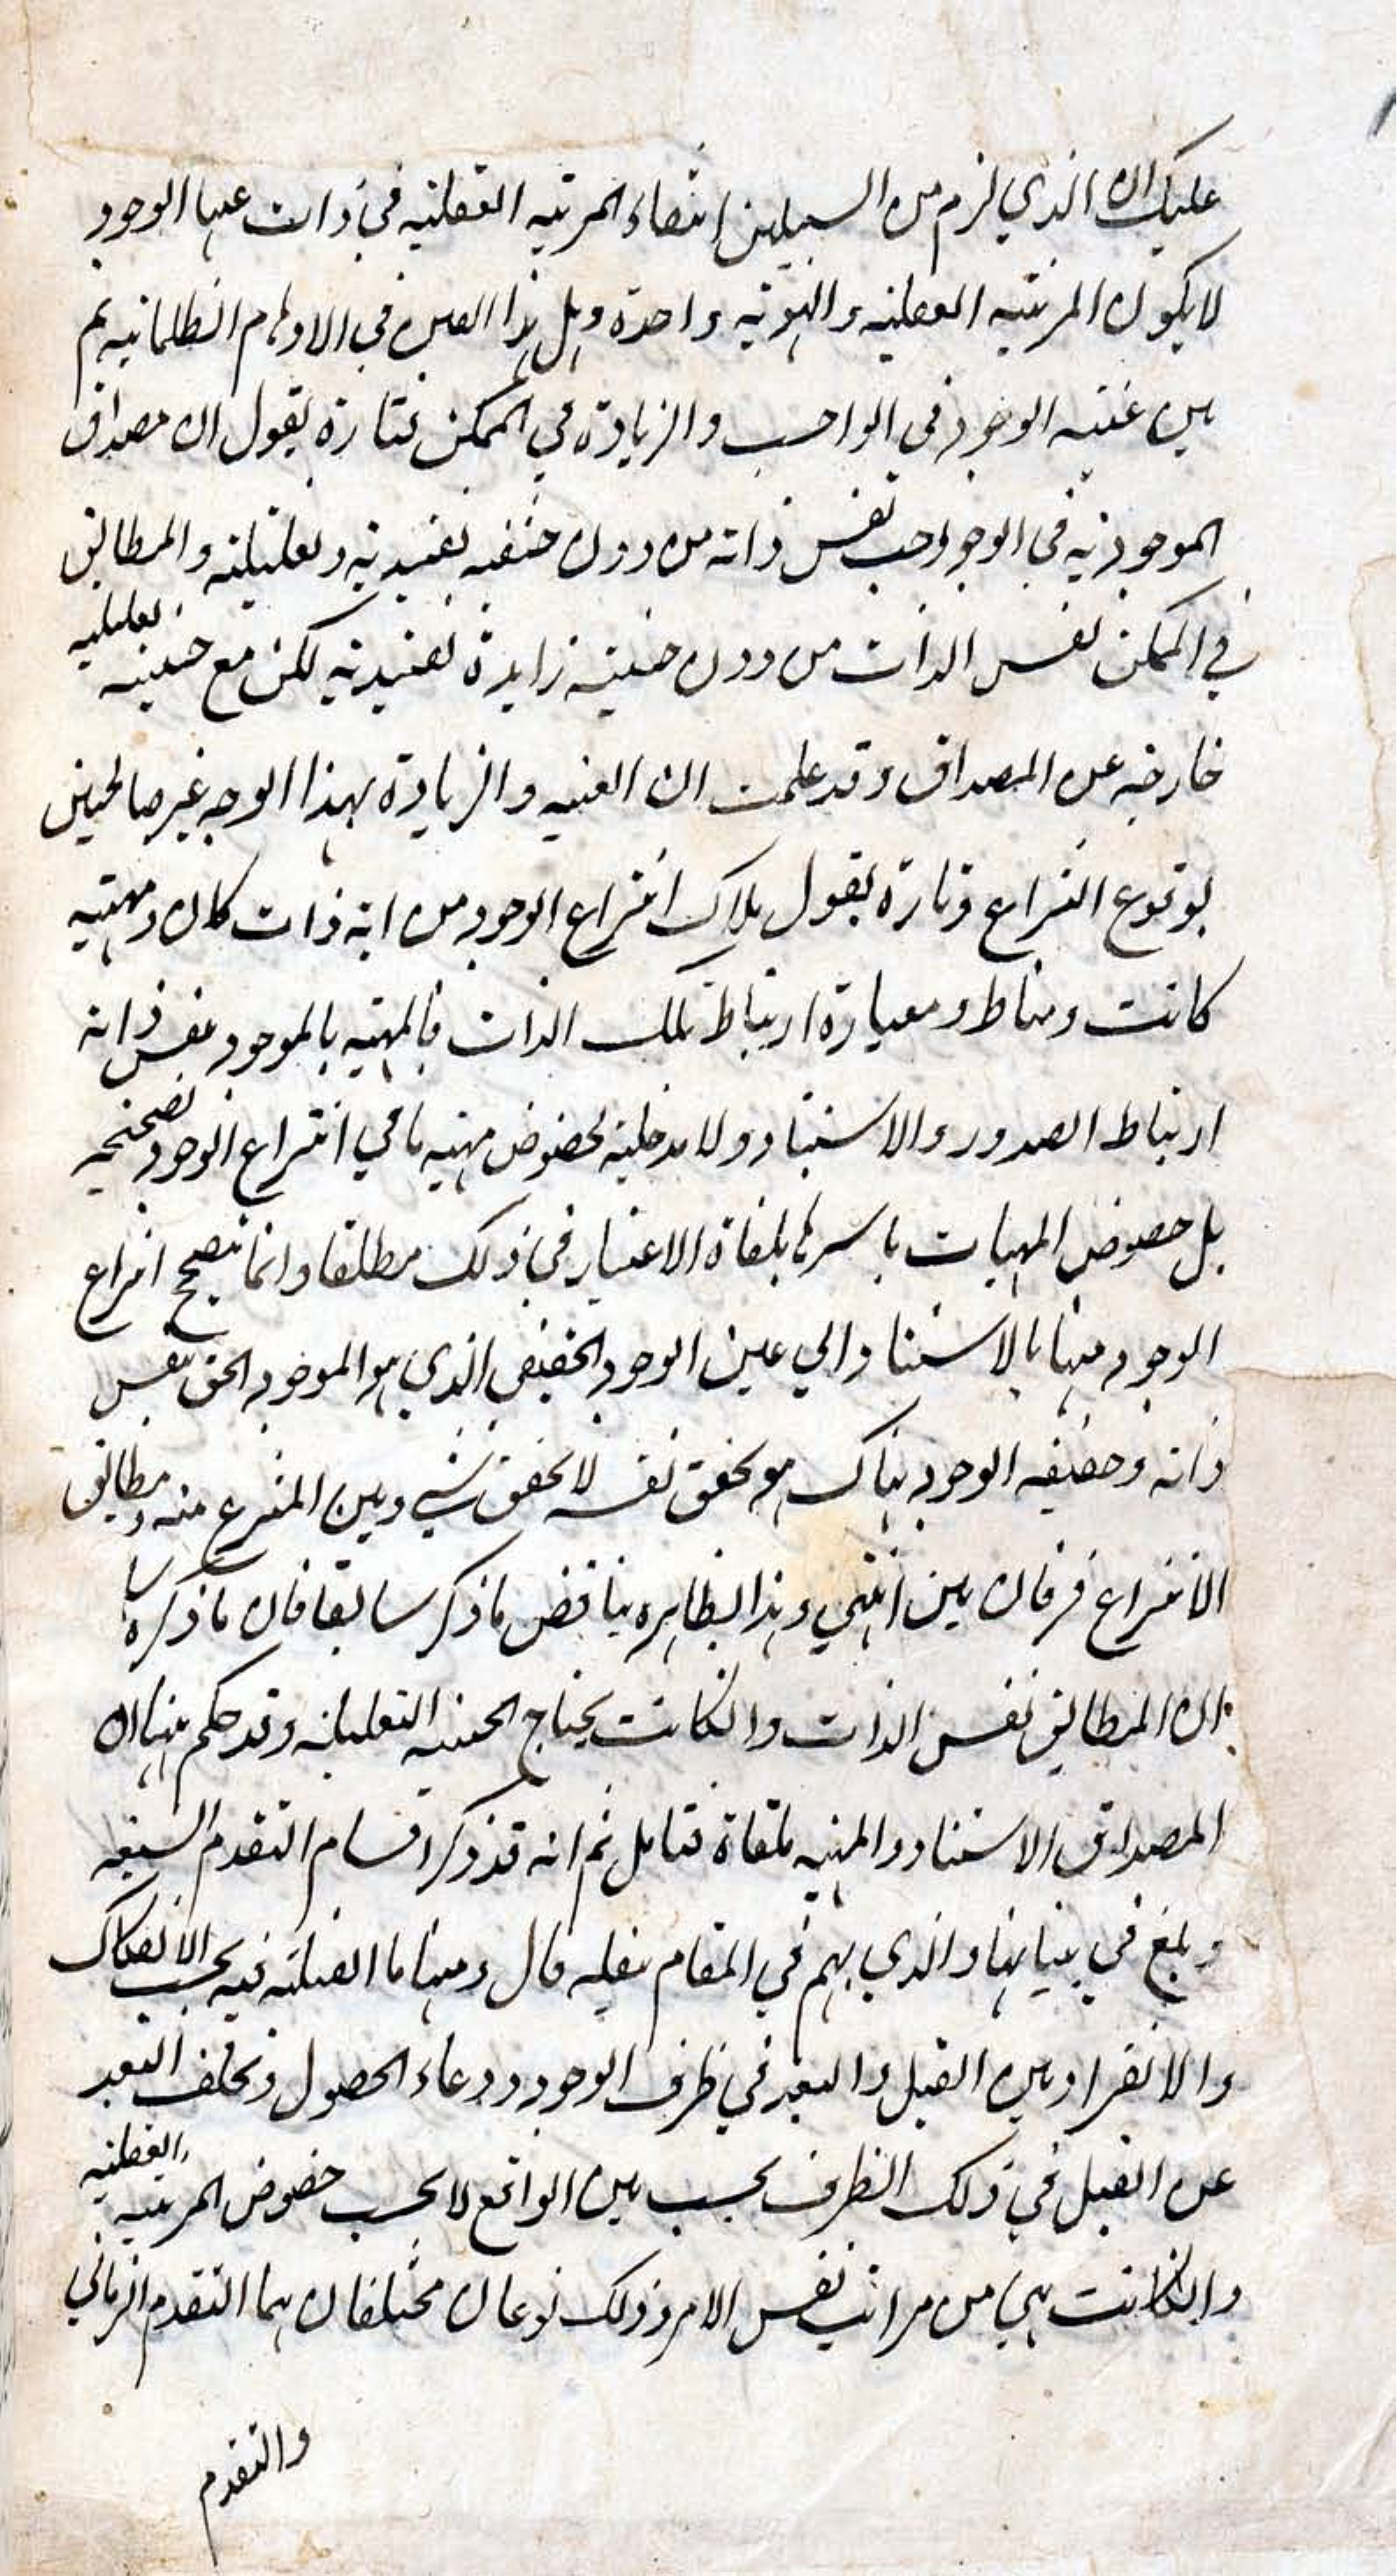 عليك ان الذي لزم من السبيلين انتفاء المرتبه العقليه في ذات عينها الوجود
لا يكون المرتبه العقليه والهويه واحدة وهل هذا العين في الاوهام الظلمانيه ثم
بين عينيه الوجود في الواجب والزيادة في الممكن فتارة يقول ان مصداق
الموجوديه في الوجود واجب نفس ذاته من دون حيثيه تقييديه وتعليليه والمطابق
في الممكن نفس الذات من دون حيثيه زايدة تقييديه لكن مع حيثيه تعليليه
خارجه عن المصداق وقد علمت ان العينيه والزيادة بهذا الوجه غير صالحين
لوقوع النزاع وتارة يقول ملاك انتزاع الوجود من ايه ذات كان ومهيه
كانت ومناط ومعيارة ارتباط تلك الذات فالمهيه بالموجود بنفس ذاته
ارتباط الصدور والاستناد ولا مدخليه لخصوص مهيه ما في انتزاع الوجود تصحيحه
بل خصوص المهيات باسرها ملغاة الاعتبار في ذلك مطلقا وانما تصحيح انتزاع
الوجود منها بالاستناد الي عين الوجود الحقيقي الذي هو الموجود الحق بنفس
ذاته وحقيقه الوجود هناك هو تحقق نفسه لا تحقق شي وبين المنتزع منه ومطابق
الانتزاع فرقان بين انتهي وهذا بظاهره يناقض ما ذكر سابقا فان ما ذكره سابقا
ان المطابق نفس الذات وان كانت يحتاج الحيثيه التعليليه وقد حكم ههنا ان
المصداق الاستناد والمهيه ملقاة فتامل ثم انه قد ذكر اقسام التقدم السبعه
وبلغ في بيانها والذي يهم في المقام نقله قال ومنها ما القبليه فيه بحسب الانفكاك
والانفراد بين القبل والبعد في ظرف الوجود ووعاء الحصول وتخلف البعد
عن القبل في ذلك الظرف بحسب متن الواقع لا بحسب خصوص المرتبه العقليه
وان كانت هي من مراتب نفس الامر وذلك نوعان مختلفان هما التقدم الزماني
والتقدم